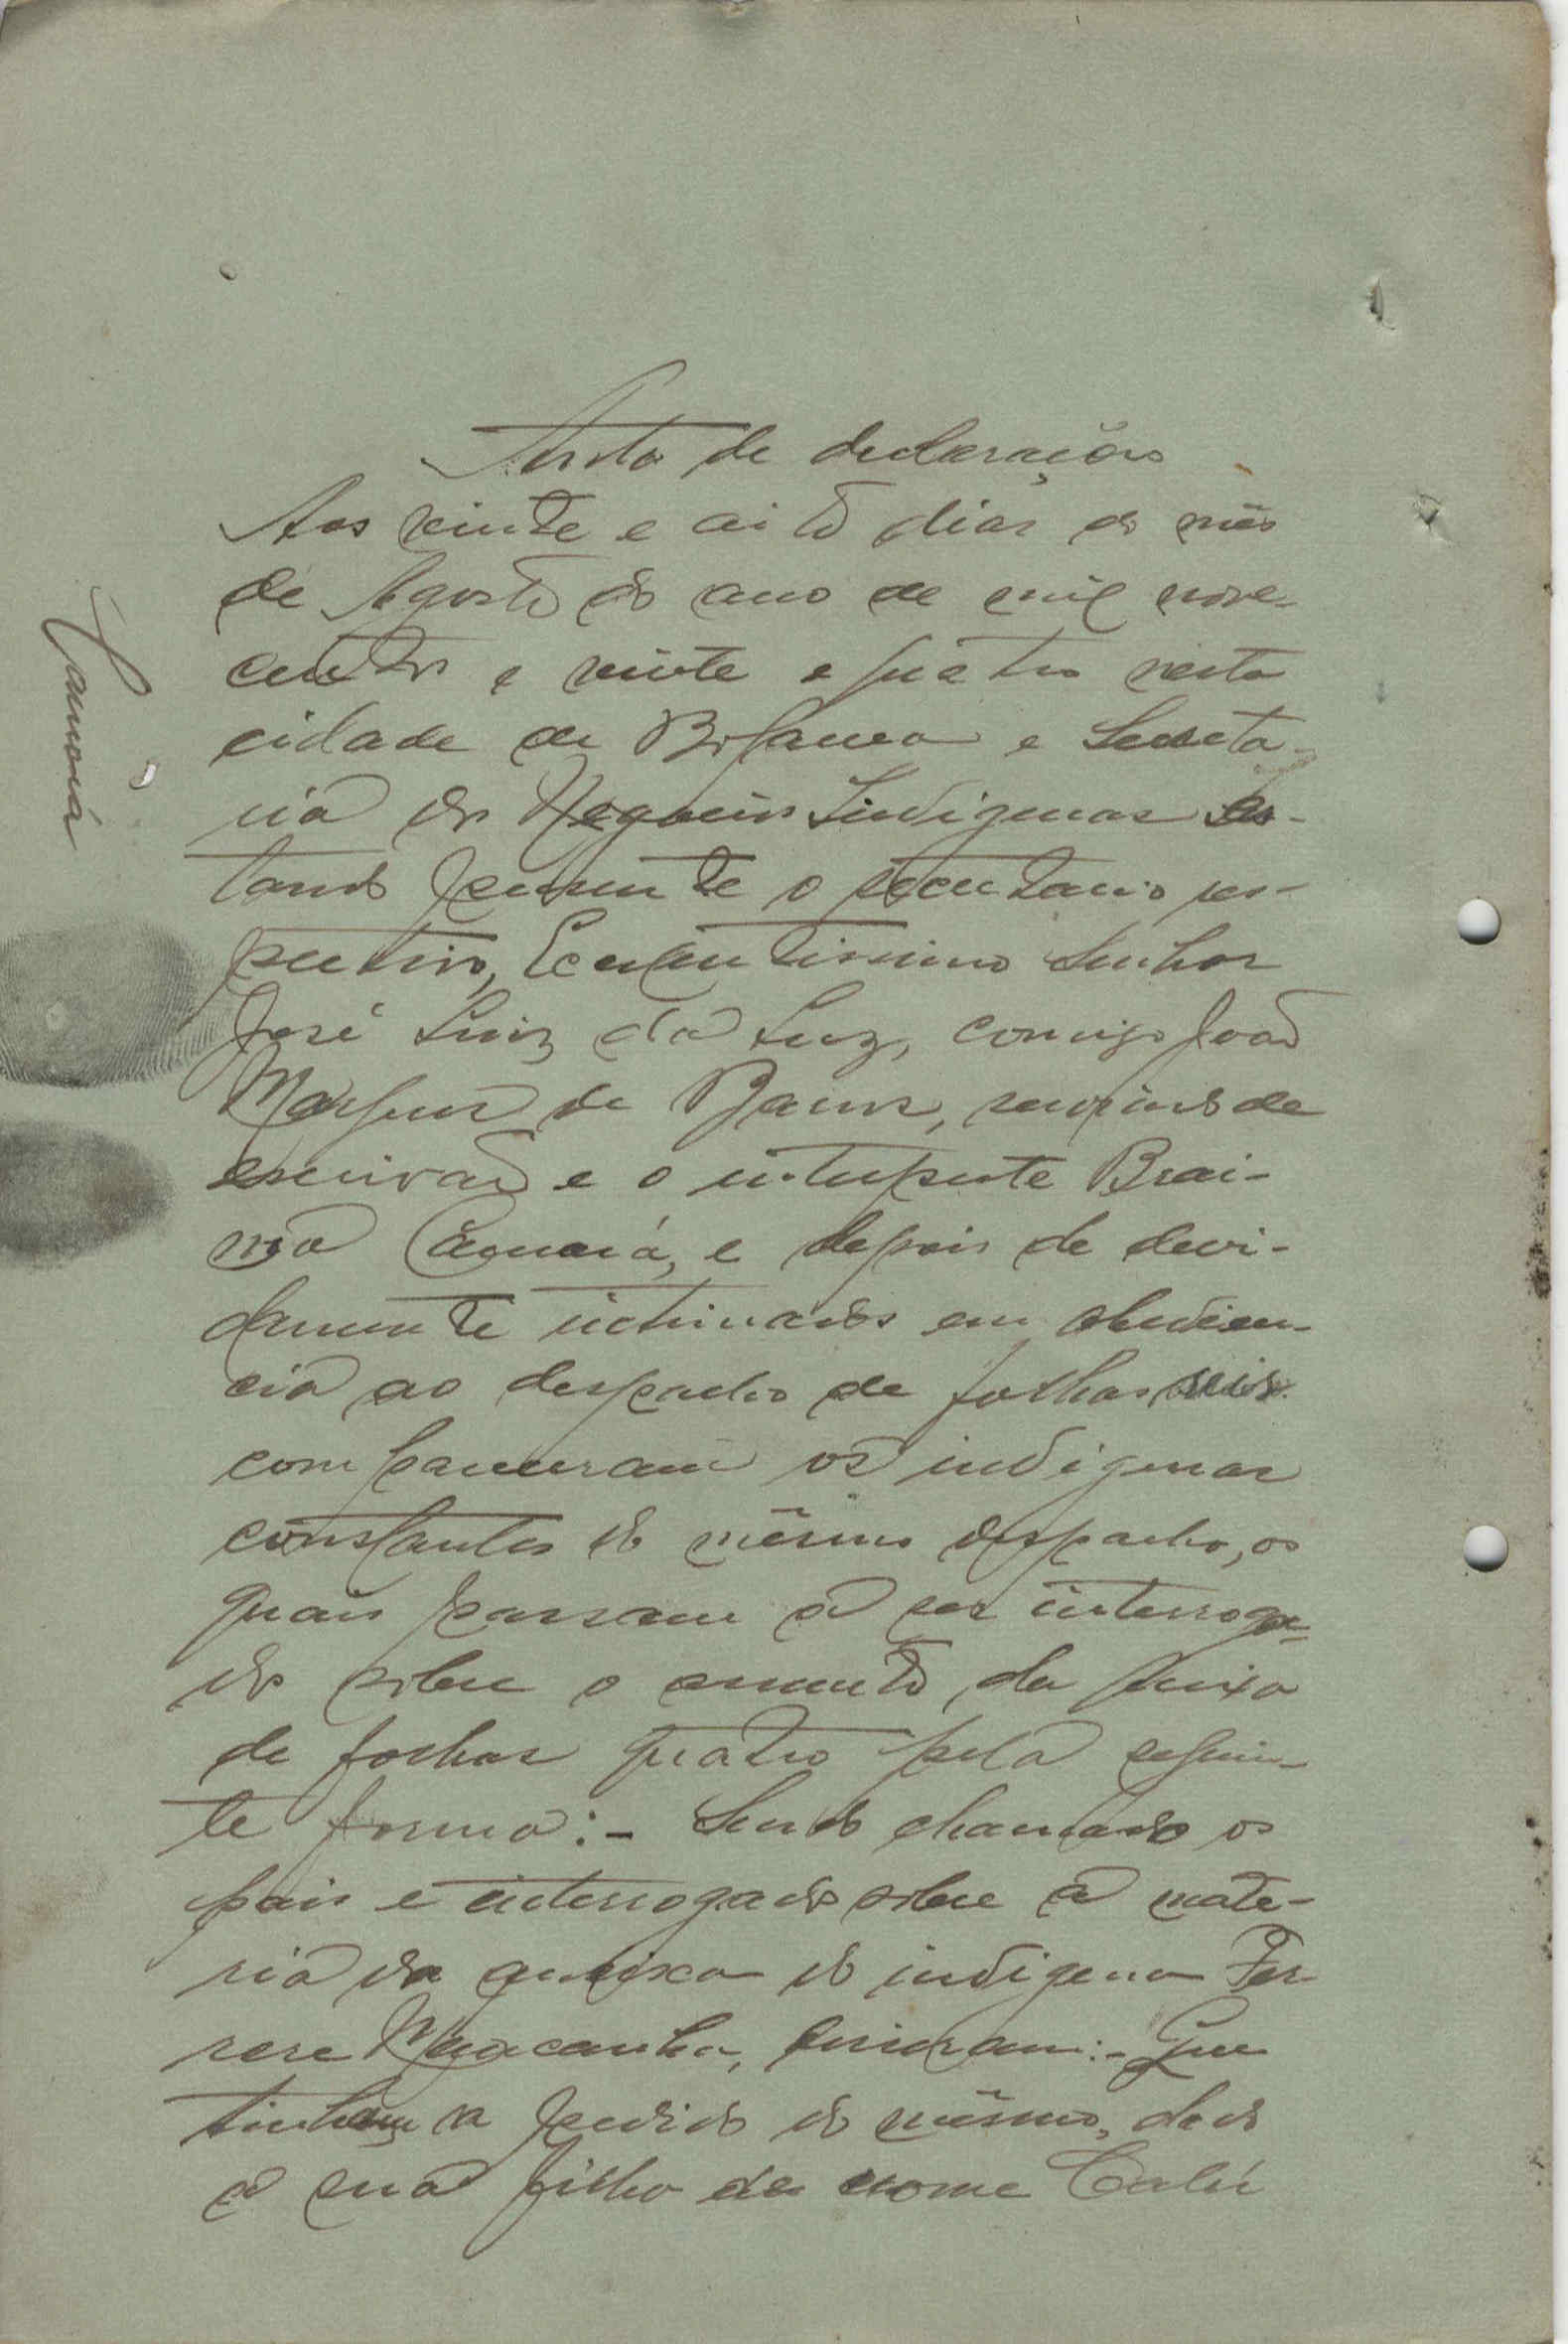 Auto de declarações
Aos vinte e oito dias do mês
de Agosto do ano de mil nove-
centos e vinte e quatro nesta
cidade de Bolama e Secreta-
ria dos Negocios Indigenas es-
tando presente o secretario res-
pectivo, Excelentissimo Senhor
José Luiz da Luz, comigo João
Marques de Barros, servindo de
escrivão e o interprete Brai-
ma Camará, e depois de devi-
damente intimados em obedien-
cia ao despacho de folhas seis
compareceram os indigenas
constantes do mêsmo despacho, os
quais passam a ser interroga-
dos sobre o assunto da queixa
de folhas quatro pela seguin-
te forma:- Sendo chamado os
pais e interrogados sobre a mate-
ria da queixa do indigena Fer-
rere, disseram:- Que
tinham a pedido do mêsmo, dado
a sua filha de nome
Camará